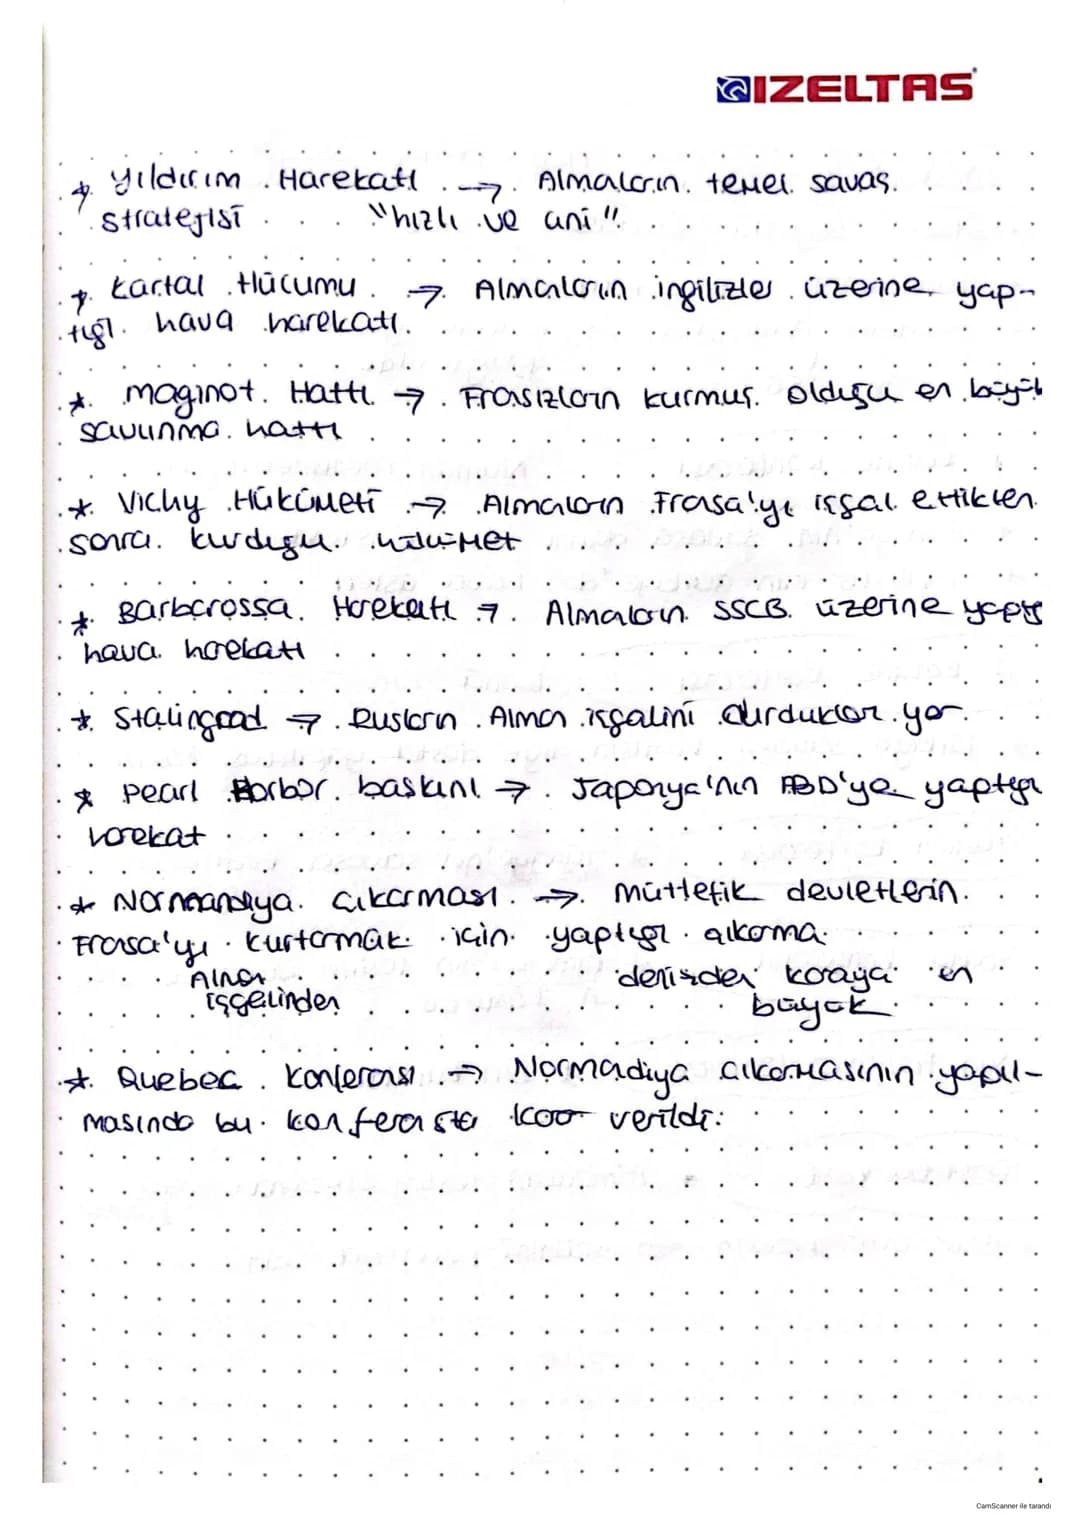 IZELTAS
* Yıldırım Harekatı → Almaların temel savaş
stratejisi "hızlı ve ani"
* Kartal Hücumu → Almaların ingilizler üzerine yap-
tığı hava harekatı.
* maginot Hattı → Frasızların kurmuş olduğu en büyük
savunma hattı
* Vichy Hükümeti → Almaların Frasa'yı işgal ettikten
sonra kurduğu hükümet
* Barbarossa Harekatı → Almaların SSCB üzerine yaptığı
hava harekatı
* Stalingrad → Rusların Alman işgalini durdukları yer
* Pearl Harbor baskını → Japonya'nın ABD'ye yaptığı
harekat
* Normandiya çıkarması → müttefik devletlerin
Frasa'yı kurtarmak için yaptığı çıkarma
Alman denizden karaya en
işgalinden büyük
* Quebec Konferansı → Normadiya çıkarmasının yapıl-
masında bu konferasta karar verildi.
CamScanner ile tarandı